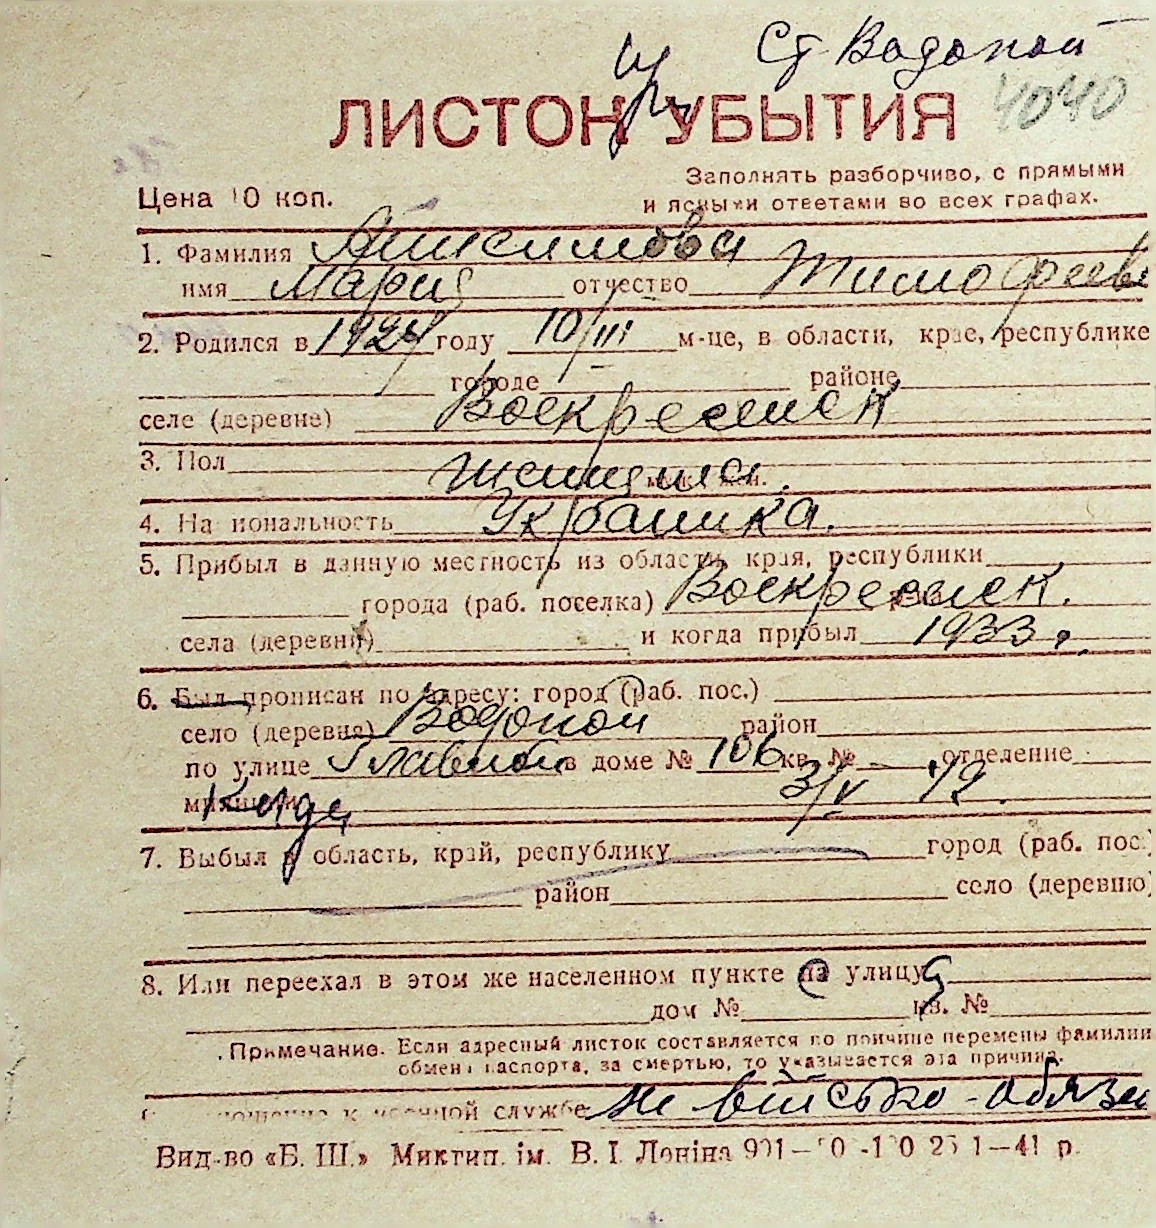 Ст Водопой
ЛИСТОК УБЫТИЯ 4040
Заполнять разборчиво, с прямыми
Цена 10 коп. и ясными ответами во всех графах.
1. Фамилия Анисимова
имя Мария отчество Тимофеев
2. Родился в 1924 году 10/III м-це, в области, крае, республике
городе районе
селе (деревне) Воскресенск
3. Пол женщина.
4. Национальность Украинка.
5. Прибыл в данную местность из области, края, республики
города (раб. поселка) Воскресенск.
села (деревни) и когда прибыл 1933 г.
6. Был прописан по адресу: город (раб. пос.)
село (деревня) Водопой район
по улице Главной в доме № 106 кв. № отделение
милиции 3/V 42.
7. Выбыл в область, край, республику город (раб. пос.)
район село (деревню)
8. Или переехал в этом же населенном пункте на улицу
дом № кв. №
Примечание. Если адресный листок составляется по причине перемены фамилии
обмена паспорта, за смертью, то указывается эта причина.
отношение к военной службе не військо-обяза
Вид-во «Б. Ш.» Миктип. ім. В. І. Леніна 1—41 р.